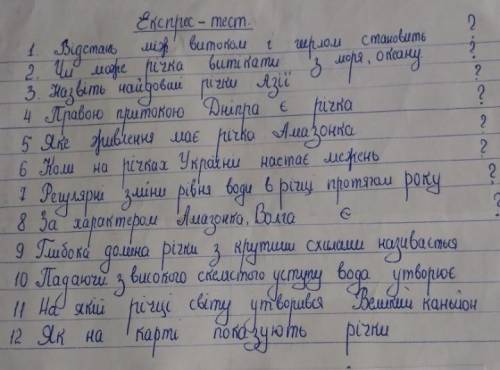 Експрес-тест.
1. Відстань між витоком і гирлом становить ?
2. Чи може річка витікати з моря, океану ?
3 Назвіть найдовші річки Азії ?
4 Правою притокою Дніпра є річка ?
5 Яке живлення має річка Амазонка ?
6 Коли на річках України настає межень ?
7 Регулярні зміни рівня води в річці протягом року ?
8 За характером Амазонка, Волга є ?
9 Глибока долина річки з крутими схилами називається
10 Падаючи з високого скелястого уступу вода утворює
11 На якій річці світу утворився Великий каньйон
12 Як на карті показують річки